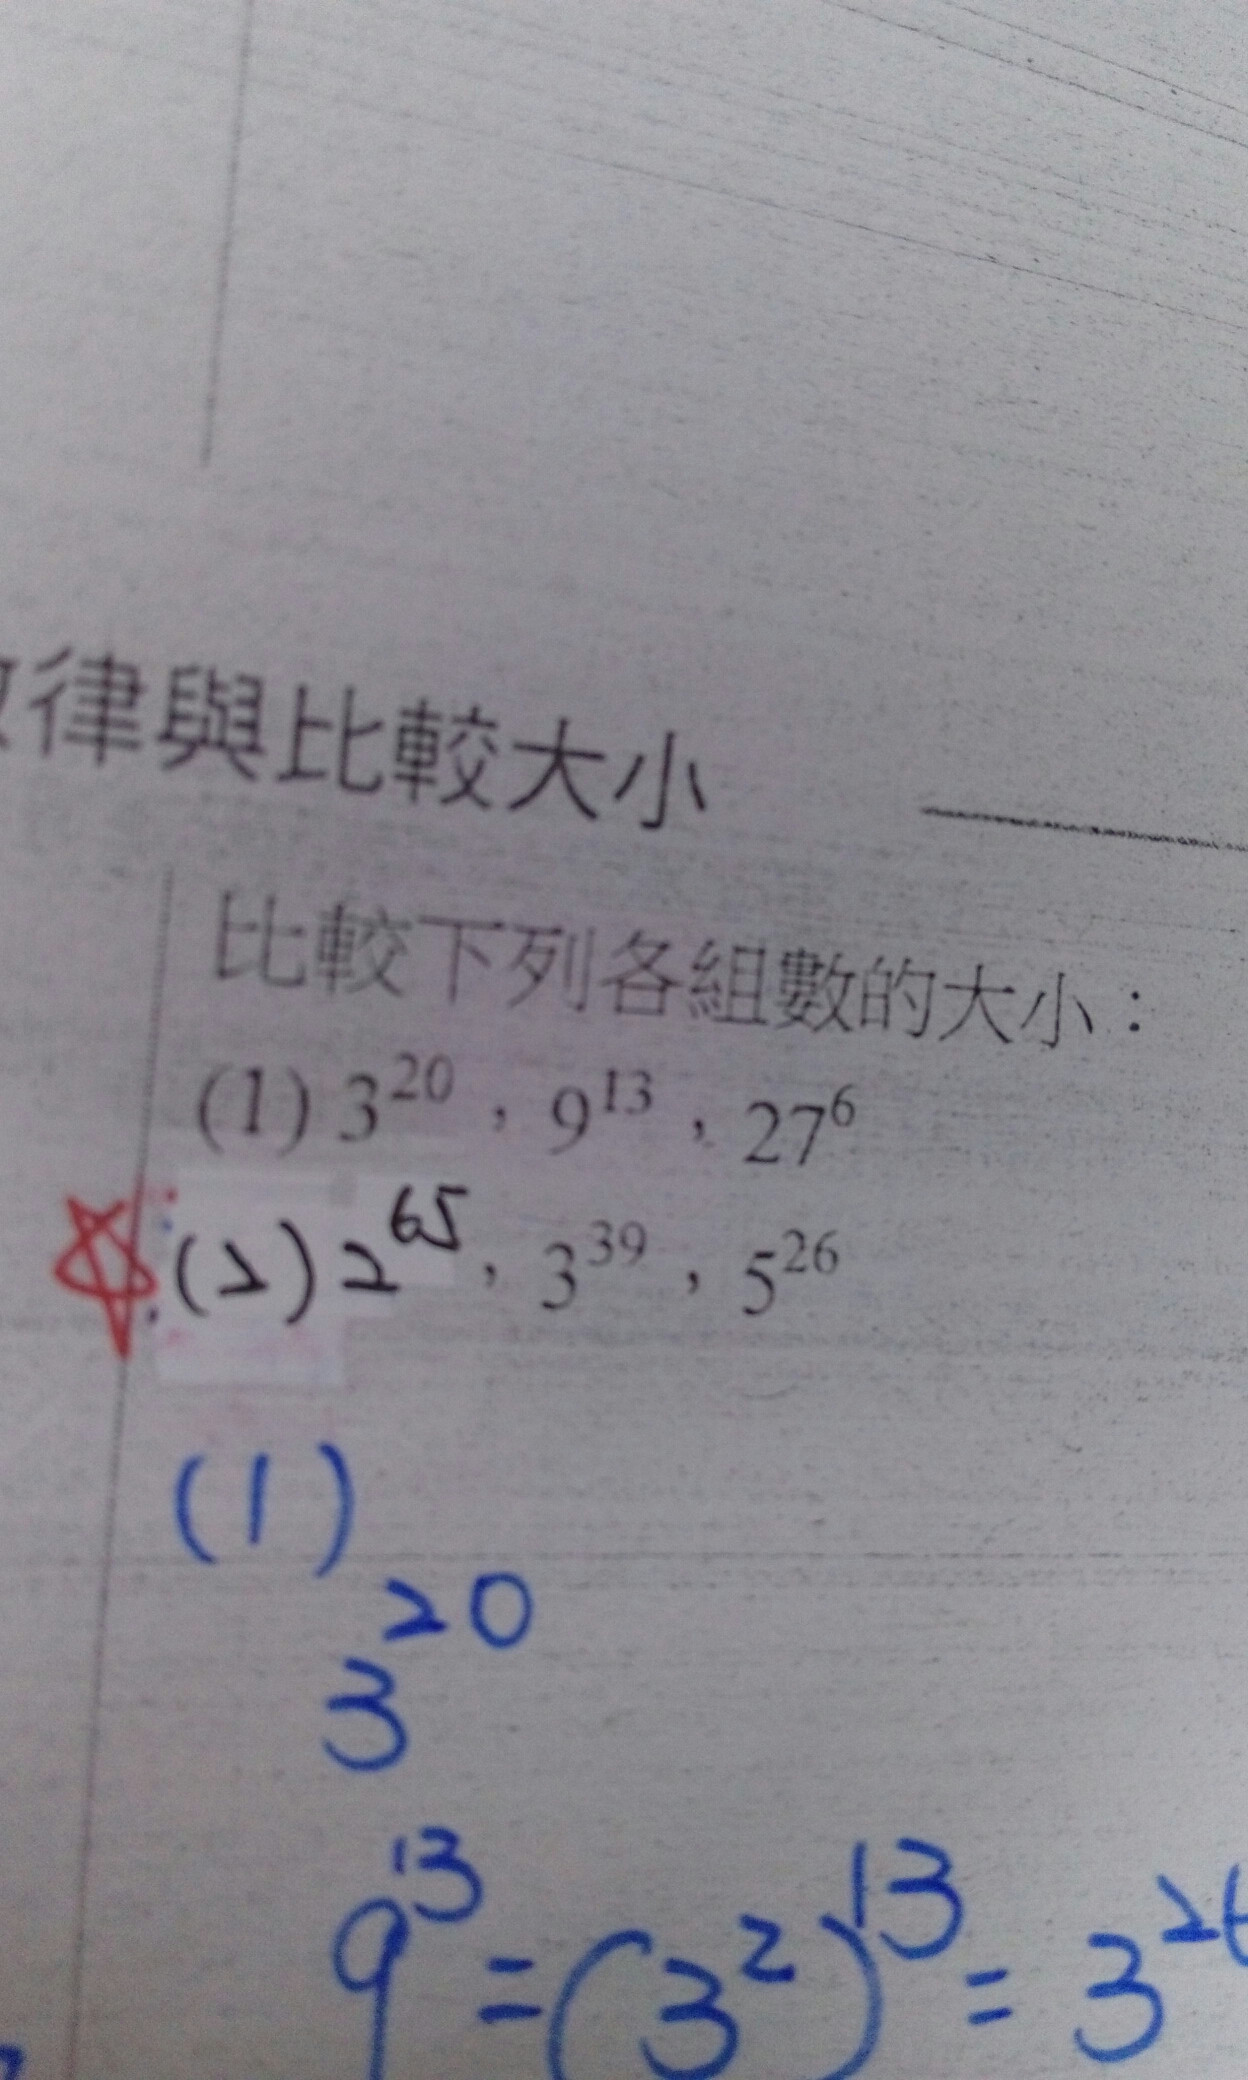 律與比較大小
比較下列各組數的大小：
(1) 3^20，9^13，27^6
(2) 2^65，3^39，5^26
(1)
3^20
9^13 = (3^2)^13 = 3^2